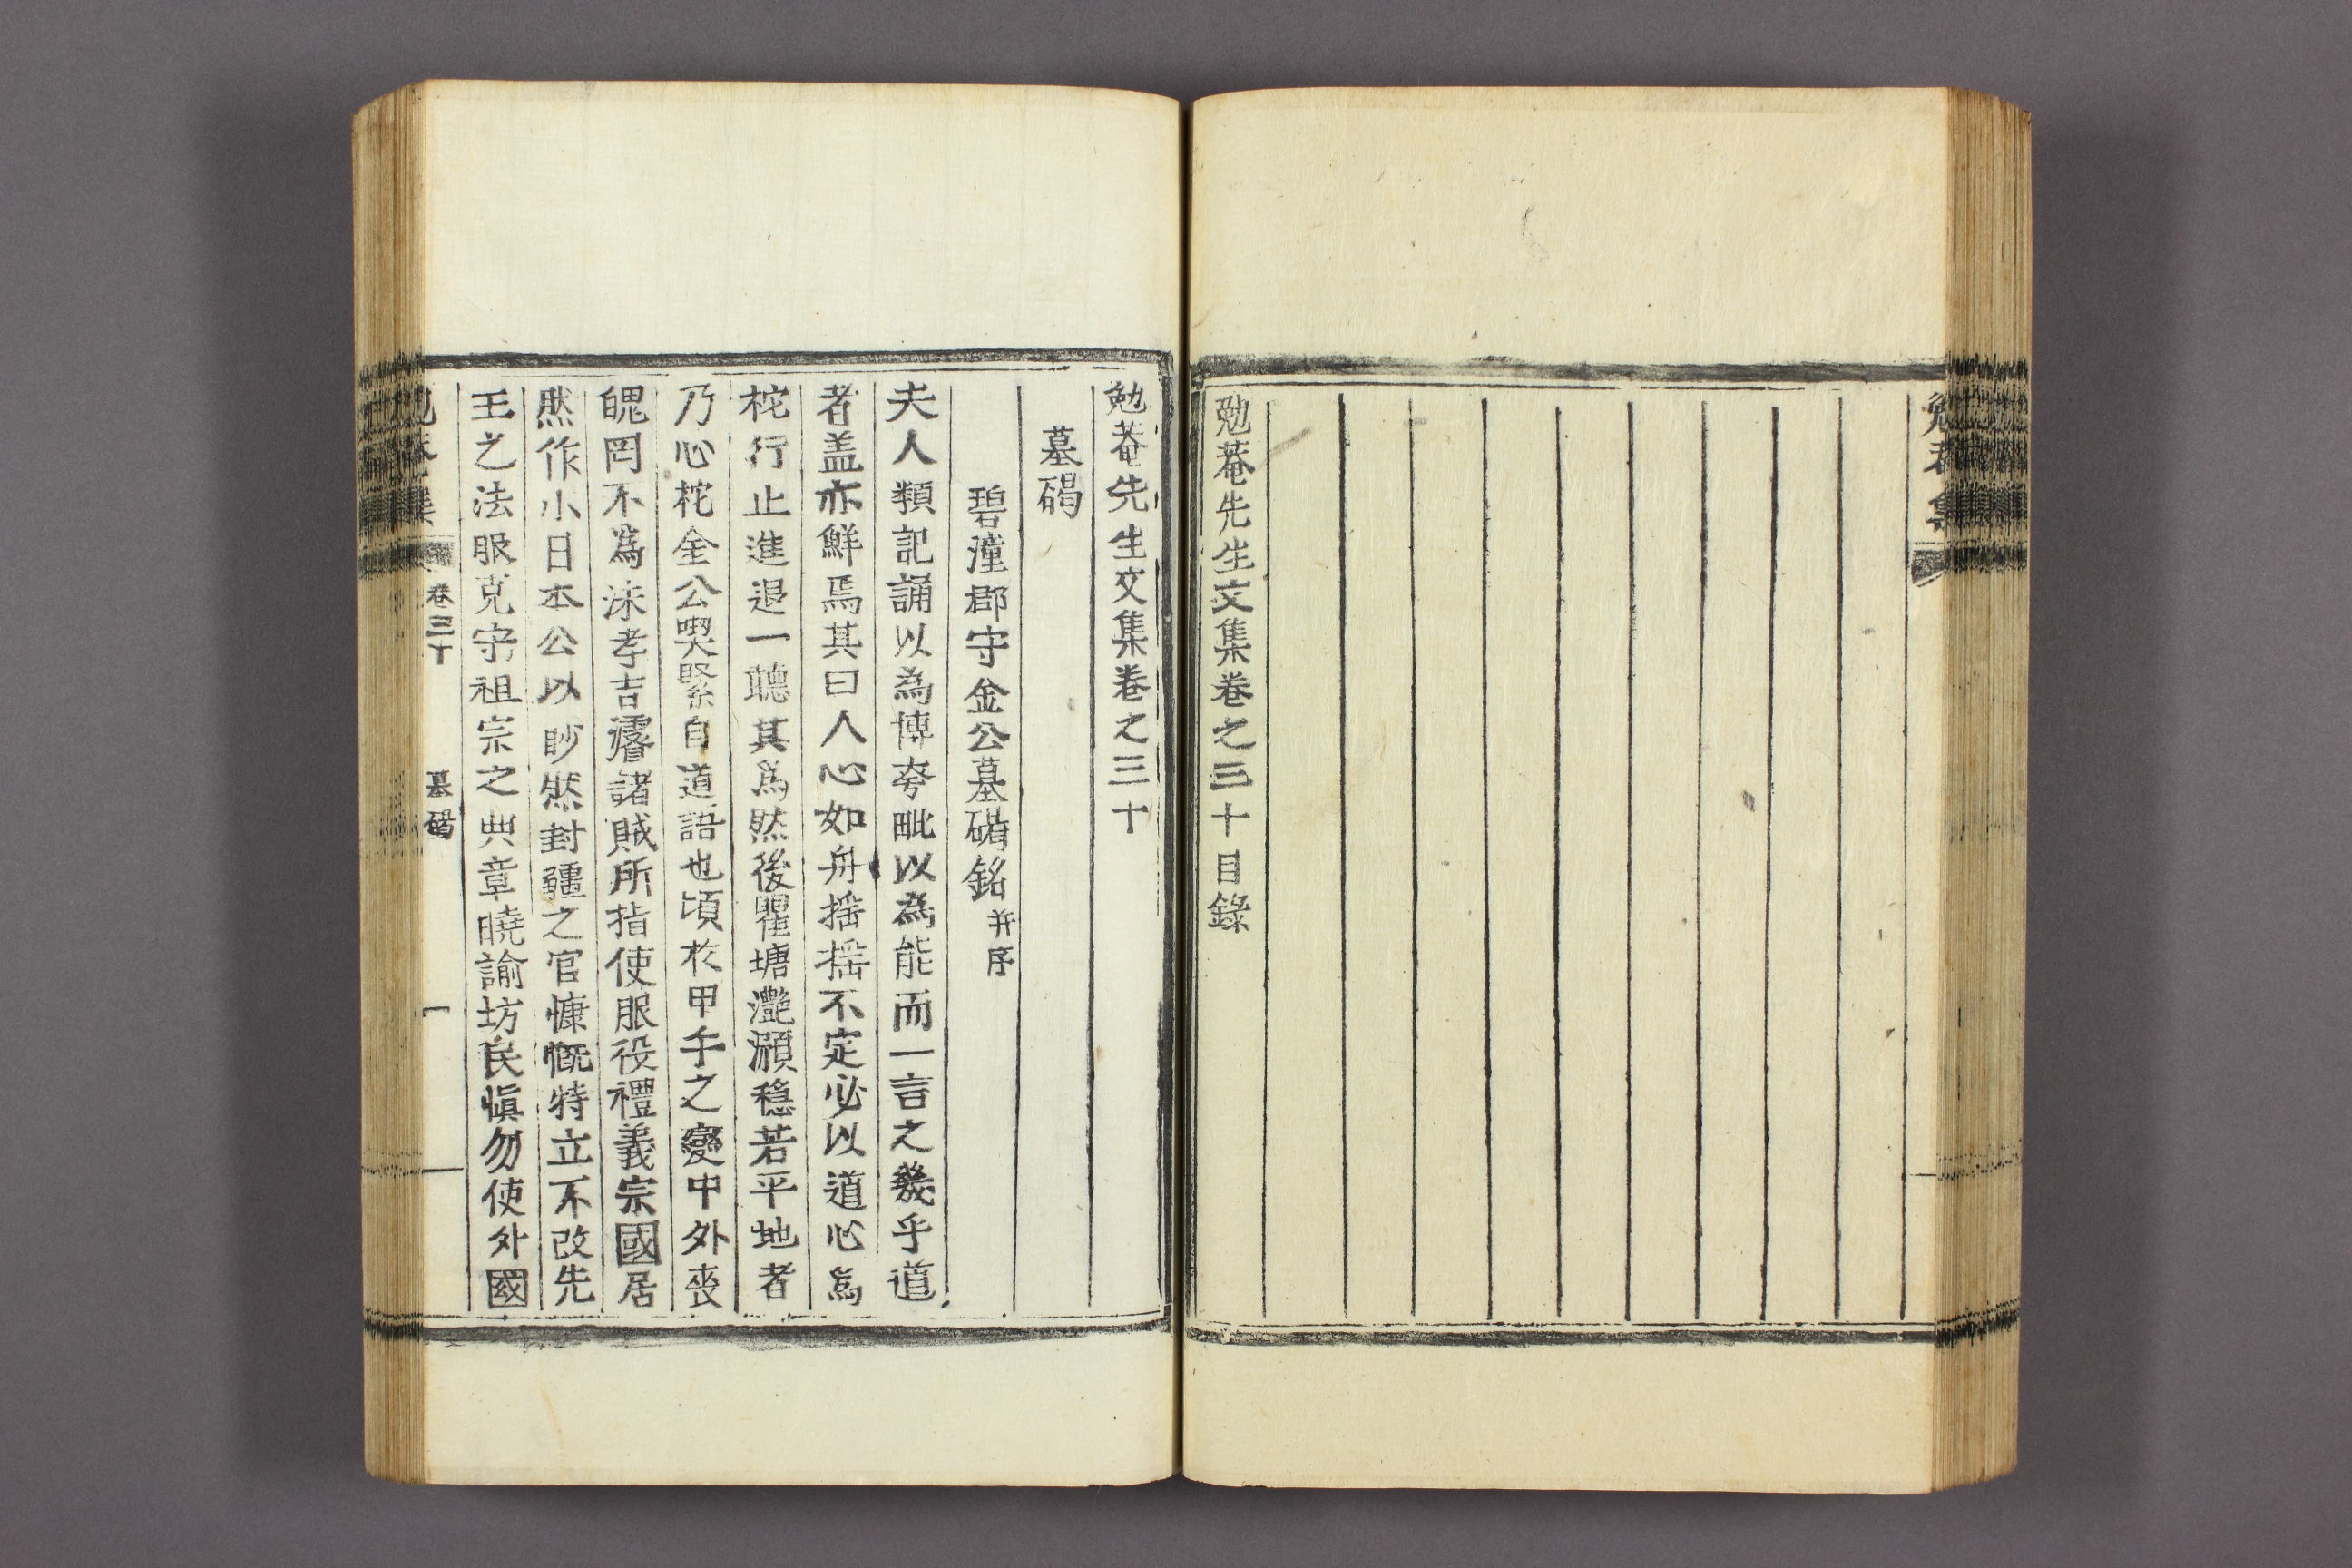 勉菴集
勉菴先生文集卷之三十目錄
勉菴先生文集卷之三十
墓碣
碧潼郡守金公墓碣銘并序
夫人類記誦以為博夸毗以為能而一言之幾乎道
者盖亦鮮焉其曰人心如舟搖搖不定必以道心爲
柁行止進退一聽其爲然後瞿塘灔澦穩若平地者
乃心柁金公喫緊自道語也頃於甲午之變中外喪
魄罔不爲洙孝吉濬諸賊所指使服役禮義宗國居
然作小日本公以眇然封疆之官慷慨特立不改先
王之法服克守祖宗之典章曉諭坊民愼勿使外國
勉菴集
卷三十
墓碣
一